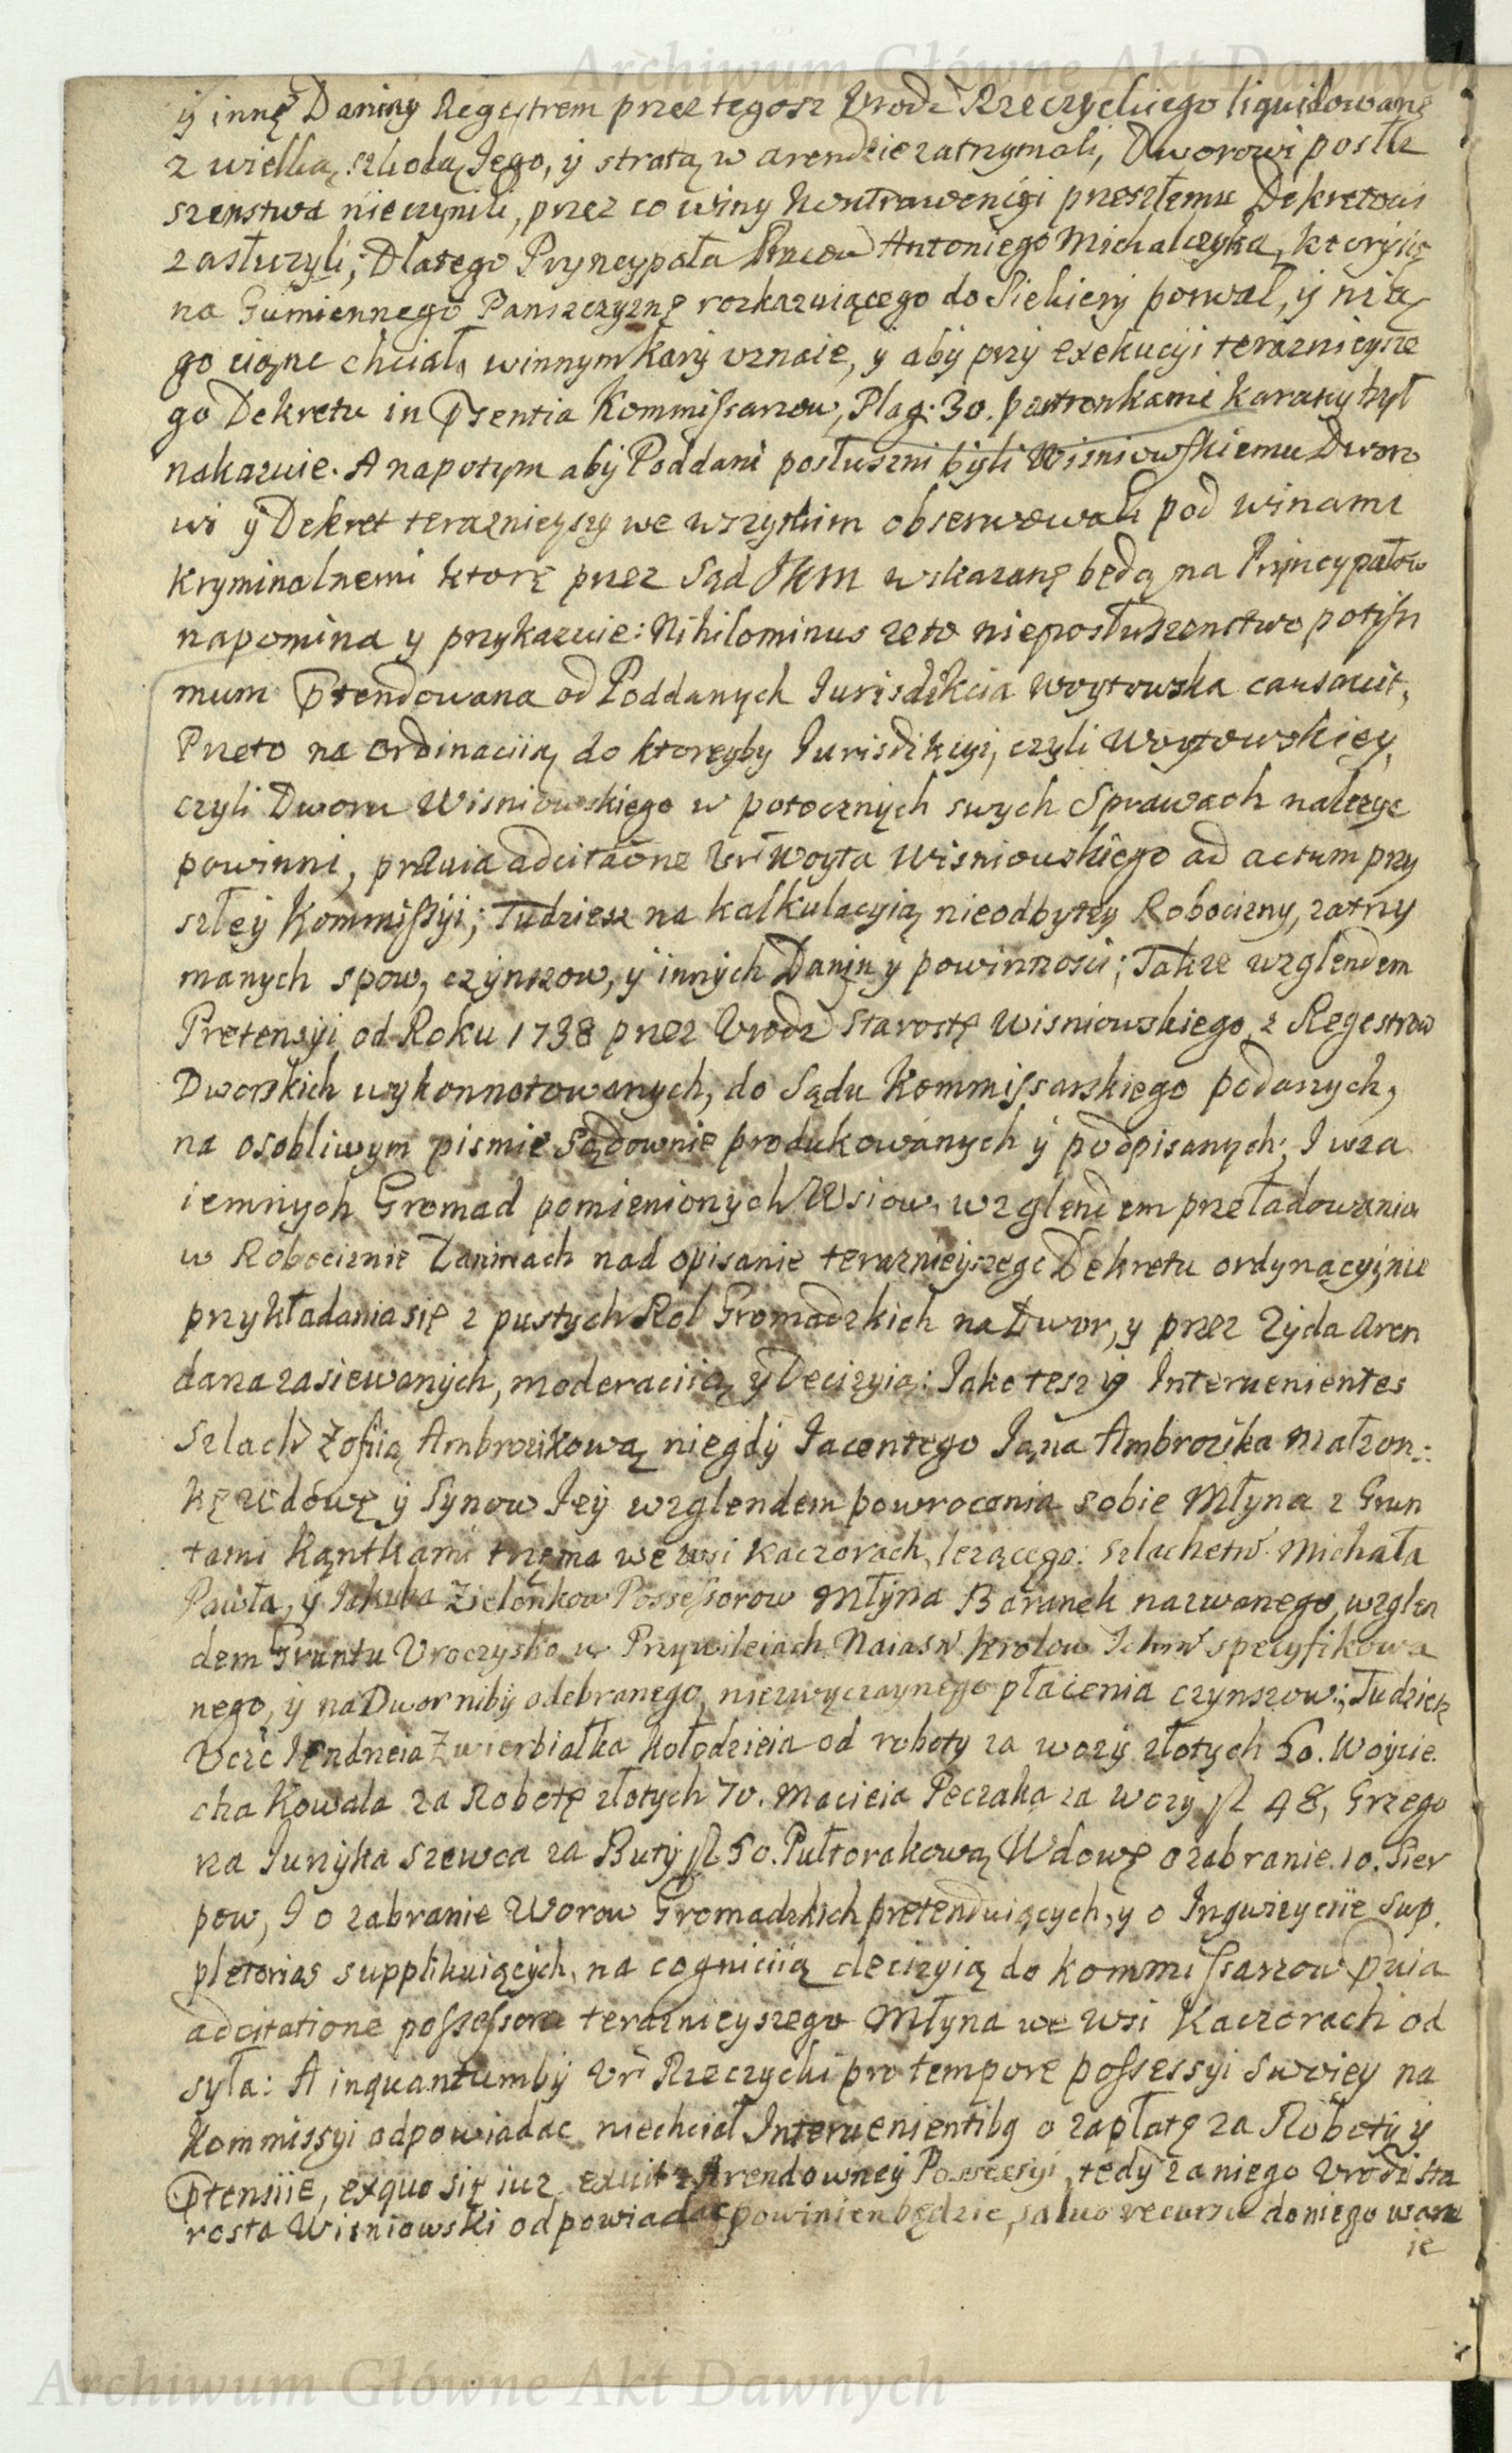 Archiwum Główne Akt Dawnych
ÿ innę Daniny Regestrem przez tegosz Urodz Rzeczyckiego liquidowanę
z wielką szkodą Jego, ÿ stratą w arendzie zatrzymali, Dworowi posłu
szenstwa nieczynili, przez co winy Kontrawencyi przeszłemu Dekretowi
zasłuzyli; Dlatego Pryncypała Antoniego Michalczyka, ktoryisię
na Gumiennego Panszczyznę rozkazuiącego do Siekiery porwał, ÿ nią
go ciąnc chciał, winnym kary uznaie, ÿ aby przÿ exekucyi teraznieysze
go Dekretu in Psentia Kommissarzow, Plag. 30. postronkami karany był
nakazuie. A napotym abÿ Poddani posłuszni byli Wisniowskiemu Dworo
wi ÿ Dekret teraznieyszy we wszystkim obserwowali pod winami
kryminalnemi ktorę przez Sąd JKM wskazanę będą na Pryncypałow
napomina y przykazuie: Nihilominus ze to nieposłuszenstwo potissi
mum Ptendowana od Poddanych Jurisdikcia Woytowska causavit,
Przeto na ordinaciią do ktoreyby Jurisdikcyi, czyli Woytowskiey,
czyli Dworu Wisniowskiego w potocznych swych Sprawach nalezyc
powinni, prævia adcitaõne Ur Woyta Wisniowskiego ad actum przy
szłeÿ Kommissÿi; Tudziesz na kalkulacyią nieodbyteÿ Robocizny, zatrzy
manych spow, czynszow, ÿ innych Danin y powinnosci; Takze wzglendem
Pretensÿi od Roku 1738 przez Urodz Starostę Wisniowskiego z Regestrow
Dworskich wykonnotowanych, do Sądu Kommissarskiego podanych,
na osobliwym pismie Sądownie produkowanych ÿ podpisanych; I wza
iemnych Gromad pomienionych Wsiow, wzglendem przeładowania
w Robociznie Daninach nad opisanie teraznieyszego Dekretu ordynacyinie
przykładania się z pustych Rol Gromadzkich na Dwor, y przez Zyda aren
darza zasiewanych, moderaciią ÿ Decizyią: Jako tesz ÿ Intervenientes
Szlach Zofiią Ambrozikową niegdÿ Jacentego Jana Ambrozika Małzon-:
kę Wdowę ÿ Synow Jeÿ wzglendem powrocenia sobie Młyna z Grun
tami Kąntkami trzema we wsi Kaczorach lezącego: Szlachetn Michała
Pawła, ÿ Jakuba Zielonkow Possessorow Młyna Baranek nazwanego, wzglen
dem Gruntu Uroczysko w Przywileiach Naiasn Krolow Ichm specyfikowa
nego, ÿ na Dwor nibÿ odebranego, niezwyczaynego płacenia czynszow:; Tudziesz
Ucżc Jendrzeia Zwierbiałka Kołodzieia od roboty za wozÿ złotych 50. Woycie
cha Kowala za Robotę złotych 70. Macieia Peczaka za wozÿ fl 48, Grzego
rza Juzyka Szewca za Butÿ fl 50. Pułtorakową Wdowę o zabranie. 10. Sier
pow, I o zabranie Worow Gromadzkich pretenduiących, y o Inqwizyciie Sup
pletorias supplikuiących, na cogniciią decizyią do Kommissarzow Pvia
adcitatione possessora teraznieyszego Młyna we Wsi Kaczorach od
syła: A inquantumbÿ Ur Rzeczycki pro tempore possessyi swoiey na
Kommissyi odpowiadac niechciał Intervenientibg o zapłatę za Robotÿ ÿ
Ptensiie, exquo się iuz exuit z Arendowneÿ Possessyi, tedÿ za niego Urodz Sta
rosta Wisniowski odpowiadac powinien będzie, salvo recursu do niego waru
ie
Archiwum Główne Akt Dawnych